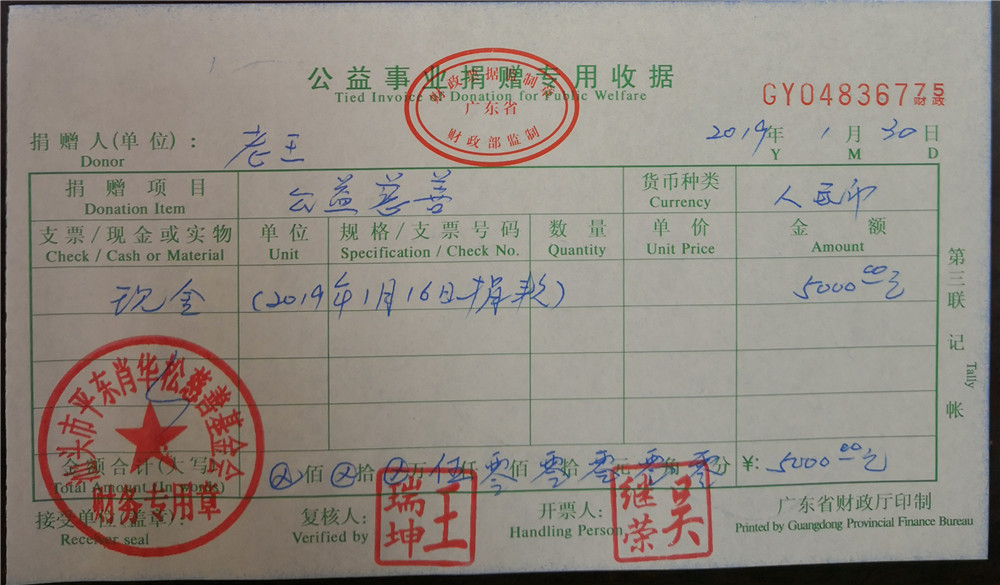 公益事业捐赠专用收据
Tied Invoice of Donation for Public Welfare
财政票据监制章
广东省
财政部监制
GY04836775
财政
捐赠人(单位): 老王
Donor
2019年 1月 30日
Y M D
捐赠项目 公益慈善 货币种类 人民币
Donation Item Currency
支票/现金或实物 单位 规格/支票号码 数量 单价 金额
Check / Cash or Material Unit Specification / Check No. Quantity Unit Price Amount
现金 (2019年1月16日捐款) 5000.00元
第三联 记帐
Tally
金额合计(大写) ⊗佰⊗拾⊗万伍仟零佰零拾零元零角零分 ¥: 5000.00元
Total Amount (In words)
汕头市平东肖华松慈善基金会
财务专用章
接受单位(盖章): 复核人: 王瑞坤 开票人: 吴继荣 广东省财政厅印制
Receiver seal Verified by Handling Person Printed by Guangdong Provincial Finance Bureau